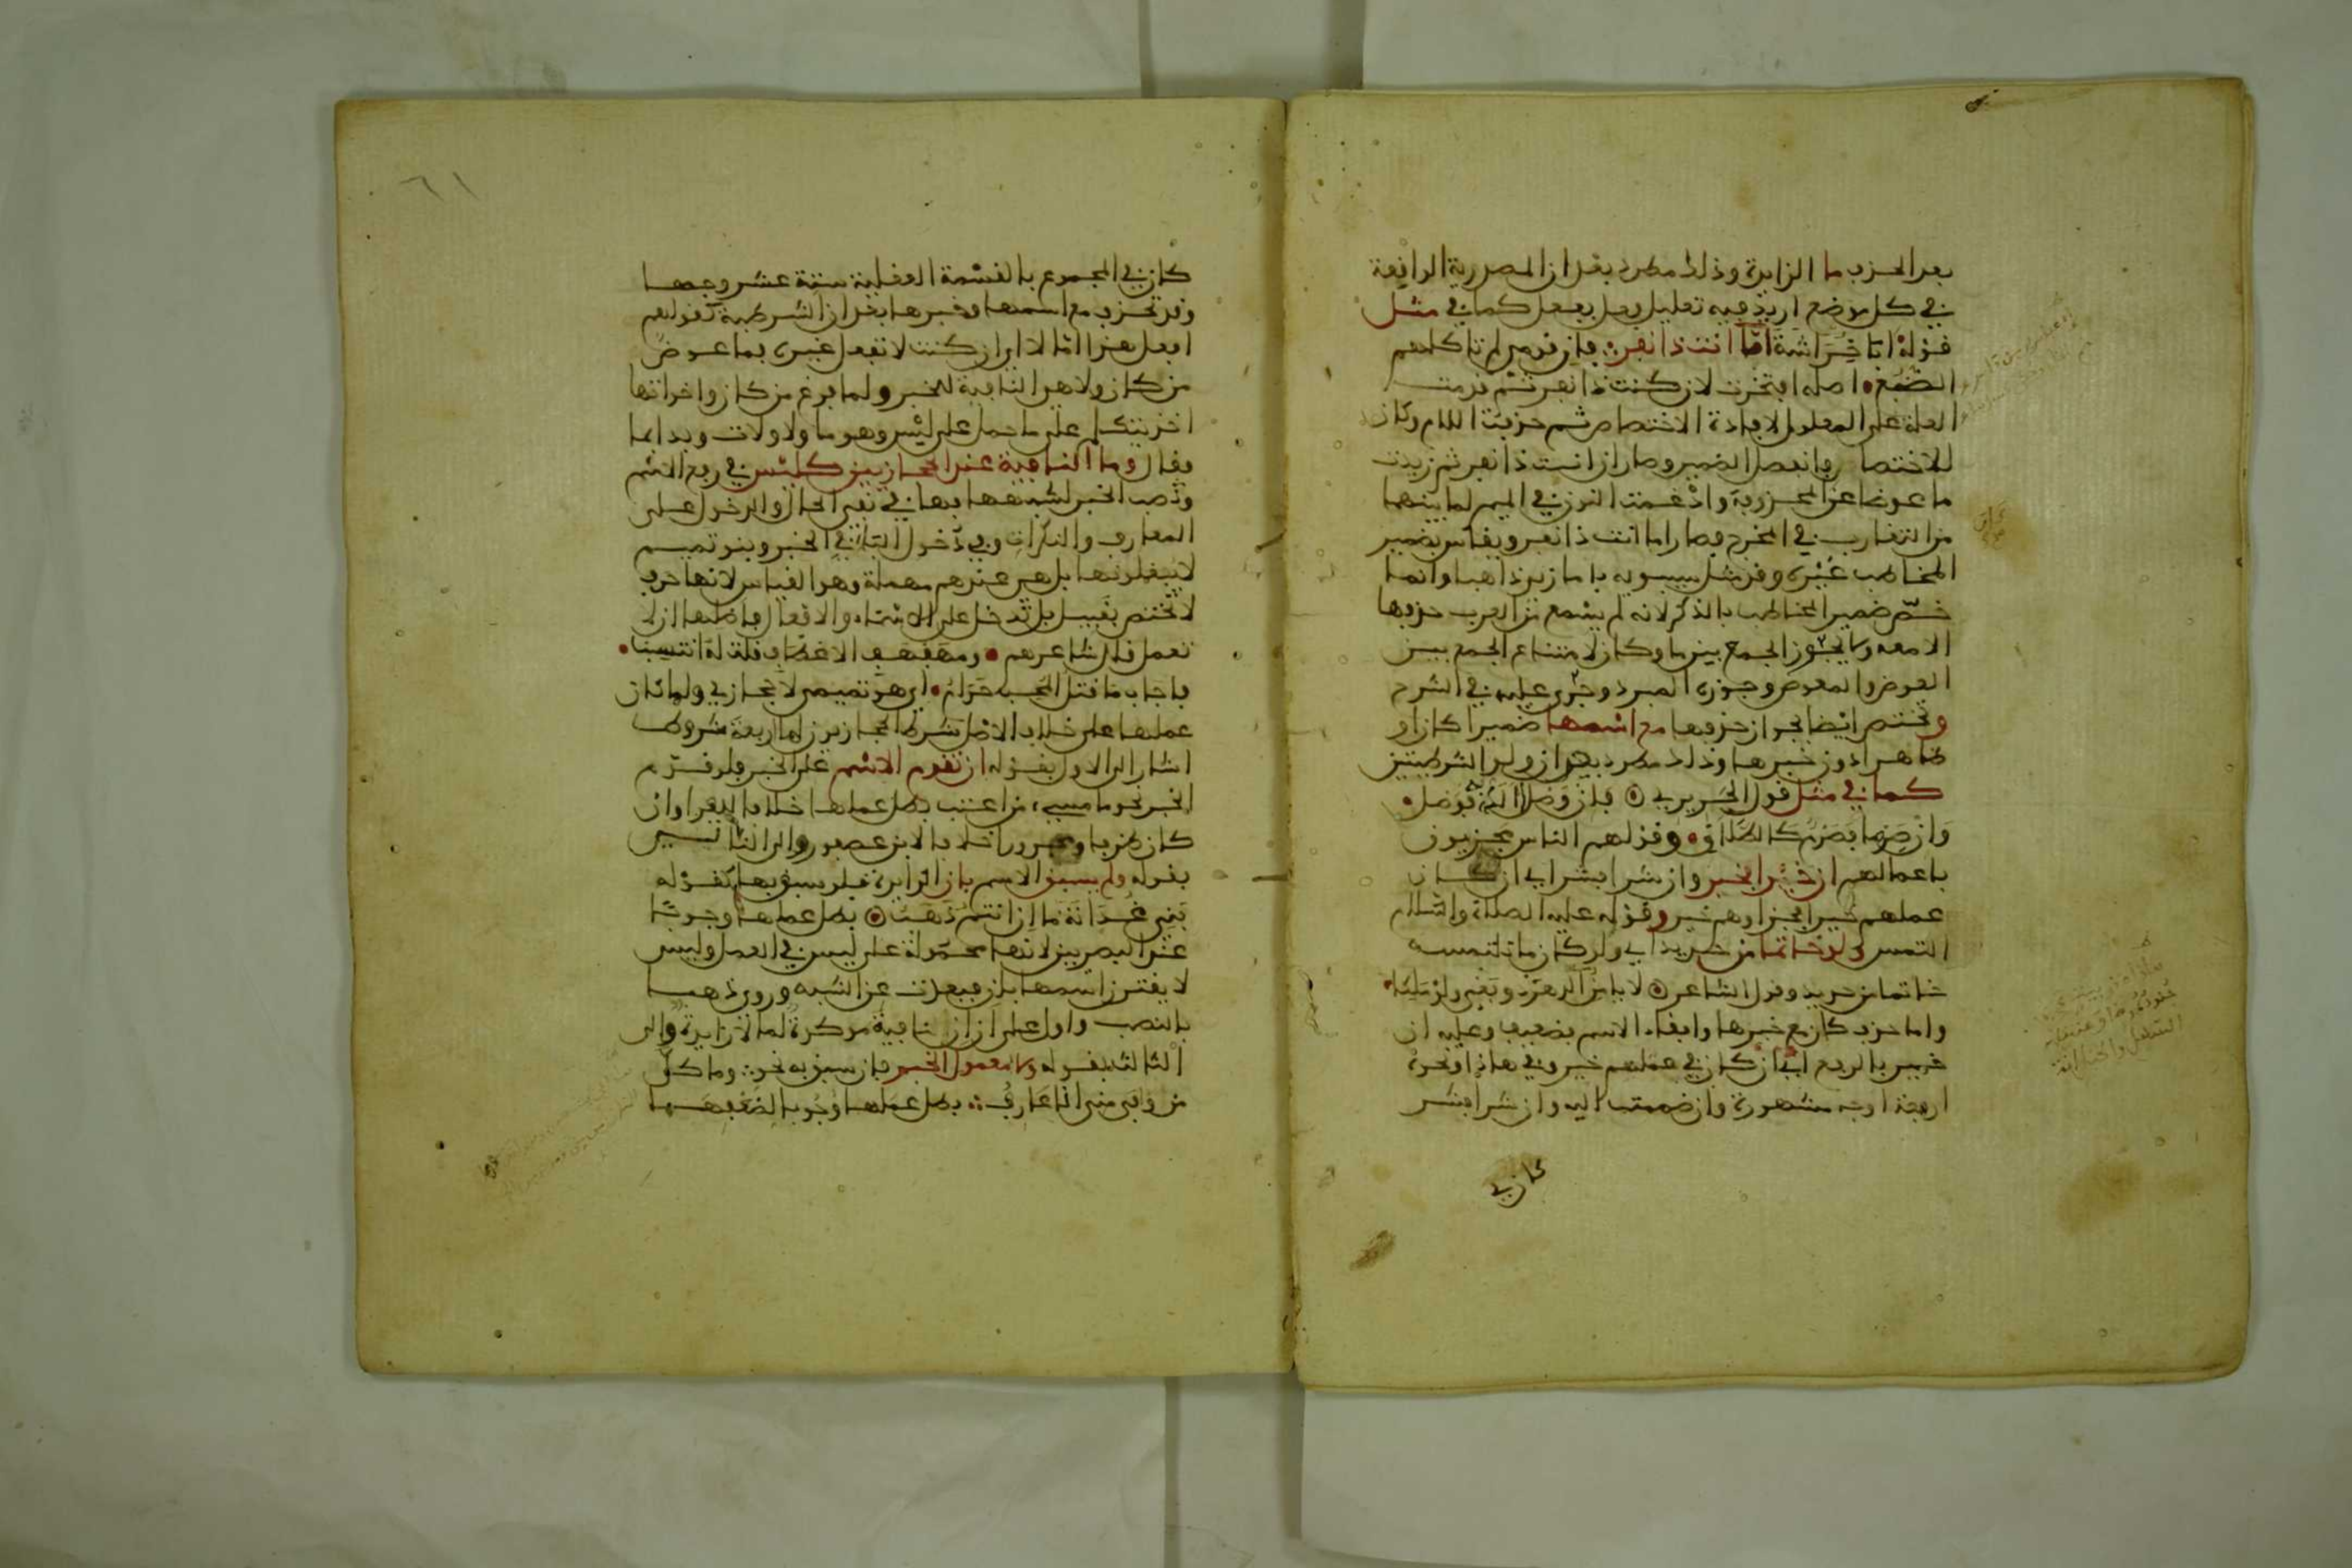 بعد الحذف ما الزايدة وذلك مطرد بعد ان المصدرية الواقعة
في كل موضع اريد فيه تعليل فعل بفعل كما في مثل
قوله ابا خُرَاشَةَ امّا انت ذا نفر فان قومي لم تاكلهم
الضَّبُع اصله افتخرت لان كنت ذا نفر ثم قدمت
العلة على المعلول لافادة الاختصاص ثم حذفت اللام وكان
للاختصار وانفصل الضمير وصار ان انت ذا نفر ثم زيدت
ما عوضا عن المحذوف وادْغمت النون في الميم لما بينهما
من التقارب في المخرج فصار اما انت ذا نفر ويقاس بضمير
المخاطب غيْره وقد مثل سيبويه باما زيد ذاهبا وانما
خصّ ضمير المخاطب بالذكر لانه لم يسْمع من العرب حذفها
الا معه ولا يجوز الجمع بينها وكان لامتناع الجمع بين
العوض والمعوض وجوزه المبرد وجرى عليه في الشرح
وتختص ايْضا بجواز حذفها مع اسْمها ضميرا كان او
ظاهرا دون خبرها وذلك مطرد بعد ان ولو الشرطيتين
كما في مثل قول الحَريري فان وَصْلاً الَذُّ به فوَصل
وَان صَرْما فَصَرْم كالطَّلاق وقولهم الناس مجزيون
باعمالهم ان خَيْرا فخير وان شرا فشر اي ان كان
عملهم خيرا فجزاؤهم خير وقوله عليه الصلاة والسّلام
التمس ولو خاتما من حديد اي ولو كان ما تلتمسه
خاتما من حديد وقول الشاعر لا يامَنُ الدهرَ ذو بَغْي ولوْ مَلِكًا
واما حذف كان مع خبرها وابقاء الاسم فضعيف وعليه ان
خير بالرفع اي ان كان في عملهم خير وفي هاذا ونحوه
اربعة اوجه مشهورة وان ضممت اليه وان شرا فشر
كان في
كان في المجموع بالقسْمة العقلية ستة عشر وجها
وقد تحذف مع اسمها وخبرها بعد ان الشرطية كقولهم
افعل هذا امّا لا اي ان كنت لا تفعل غيره فما عوض
من كان ولا هي النافية للخبر ولما فرغ من كان واخواتها
اخذ يتكلم على ما حمل على ليْس وهو ما ولا ولات وبدا بما
فقال وما النافية عند الحجازيين كليْس في رفع الاسْم
ونصب الخبر لشبهها بها في نفي الحال والدخول على
المعارف والنكرات وفي دخول البَاء في الخبر وبنو تميم
لا يعملونها بل هي عندهم مهملة وهو القياس لانها حرف
لا تختص بقبيل بل تدخل على الاسْماء والافعال فاصلها ان لا
تعمل قال شاعرهم ومهفهف الاعْطاف قلت له انتسبْ
فاجاب ما قتل المحب حَرَامُ اي هو تميمي لا حجازي ولما كان
عملها على خلاف الاصْل شرط الحجازيون لها اربعة شروط
اشار الى الاول بقوله ان تقدم الاسْم على الخبر فلو قدّم
الخبر نحو ما مسيء من اعتب بطل عملها خلافا للفرا وان
كان ظرفا او مجرورا خلافا لابن عصفور والى الثاني
بقوله ولم يسبق الاسم بان الزايدة فلو سبق بها كقوله
بَني غُدَانَةَ ما ان انتم ذَهَبُ بطل عملها وجوبًا
عنْد البصريين لانها محمولة على ليس في العمل وليس
لا يقترن اسمها بان فبعدت عن الشبه وروي ذهبا
بالنصب واول على ان ان نافية مؤكدة لما لا زايدة والى
الثالث بقوله ولا معمول الخبر فان سبق به نحو وما كلّ
من وَافَى منى انا عَارِفُ بطل عمَلها وُجُوبا لضُعْفِهَا
٦١